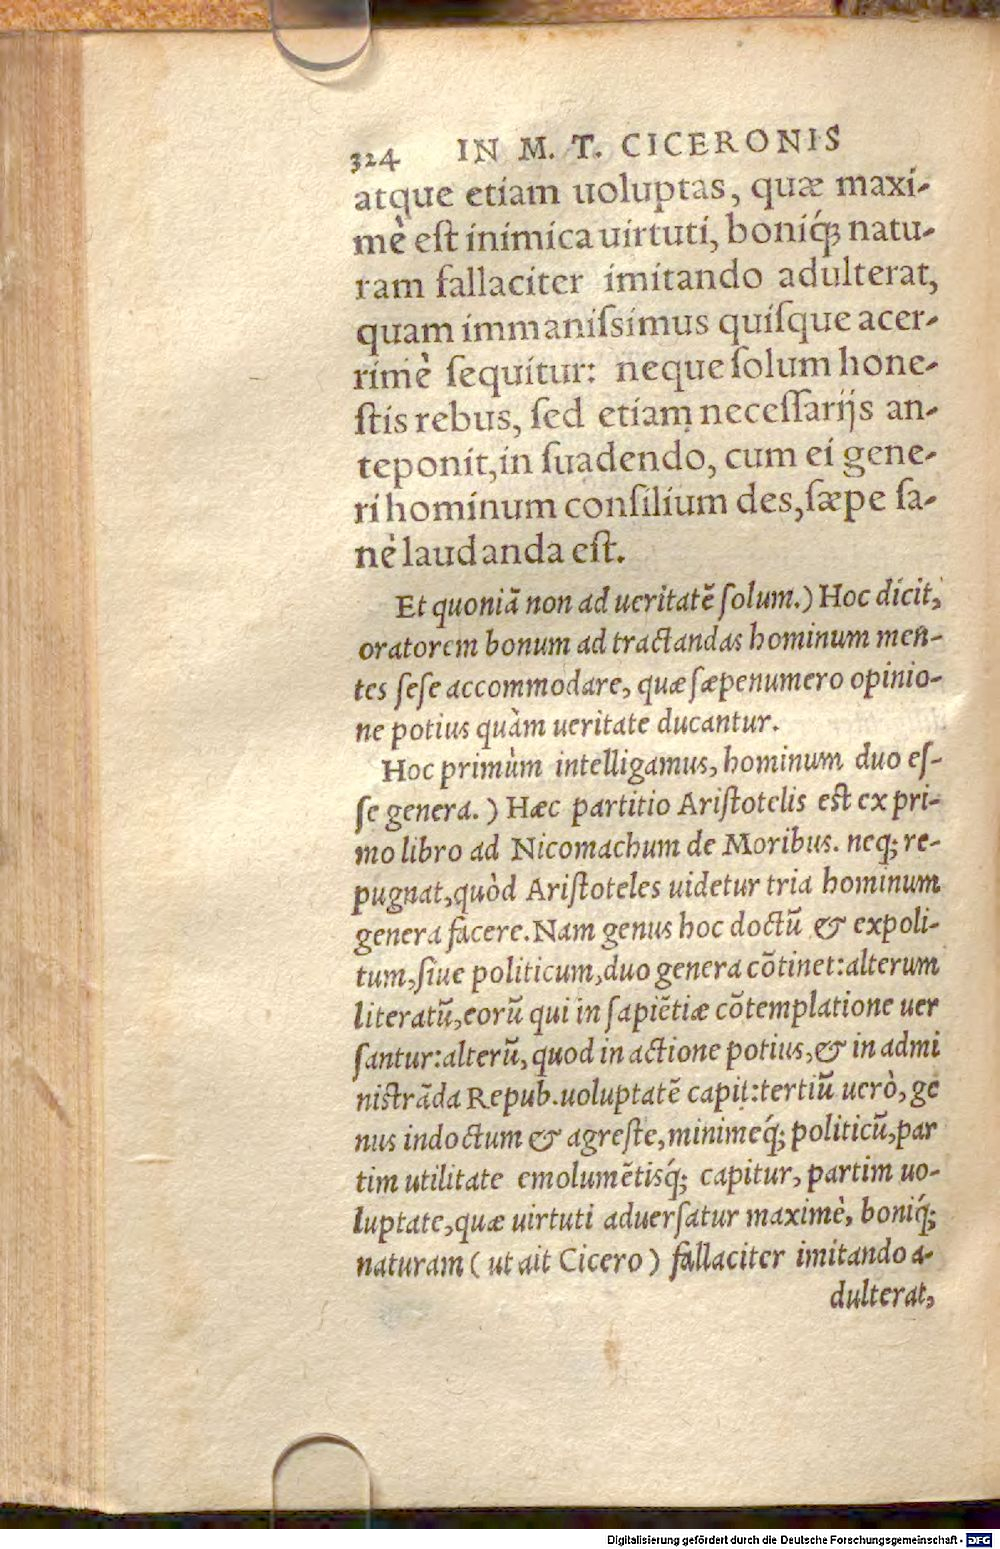 324 IN M. T. CICERONIS
atque etiam uoluptas, quæ maxi-
mè eſt inimica uirtuti, boniq́; natu-
ram fallaciter imitando adulterat,
quam immaniſsimus quiſque acer-
rimè ſequitur: neque ſolum hone-
ſtis rebus, ſed etiam neceſſarijs an-
teponit, in ſuadendo, cum ei gene-
ri hominum conſilium des, ſæpe ſa-
nè laudanda eſt.
Et quoniā non ad ueritatē ſolum.) Hoc dicit,
oratorem bonum ad tractandas hominum men-
tes ſeſe accommodare, quæ ſæpenumero opinio-
ne potius quàm ueritate ducantur.
Hoc primùm intelligamus, hominum duo eſ-
ſe genera.) Hæc partitio Ariſtotelis eſt ex pri-
mo libro ad Nicomachum de Moribus. neq; re-
pugnat, quòd Ariſtoteles uidetur tria hominum
genera facere. Nam genus hoc doctū & expoli-
tum, ſiue politicum, duo genera cōtinet: alterum
literatū, eorū qui in ſapiētiæ cōtemplatione uer
ſantur: alterū, quod in actione potius, & in admi
niſtrāda Repub. uoluptatē capit: tertiū uerò, ge
nus indoctum & agreſte, minimeq́; politicū, par
tim utilitate emolumētisq́; capitur, partim uo-
luptate, quæ uirtuti aduerſatur maximè, boniq́;
naturam (ut ait Cicero) fallaciter imitando a-
dulterat,
Digitalisierung gefördert durch die Deutsche Forschungsgemeinschaft - DFG